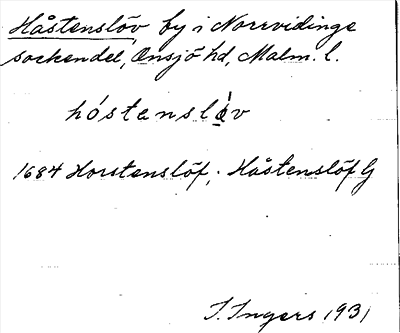 Håstenslöv by i Norrvidinge
sockendel, Onsjö hd, Malm. l.
hóstenslàv
1684 Horstenslöf; Håstenslöf G
I. Ingers 1931